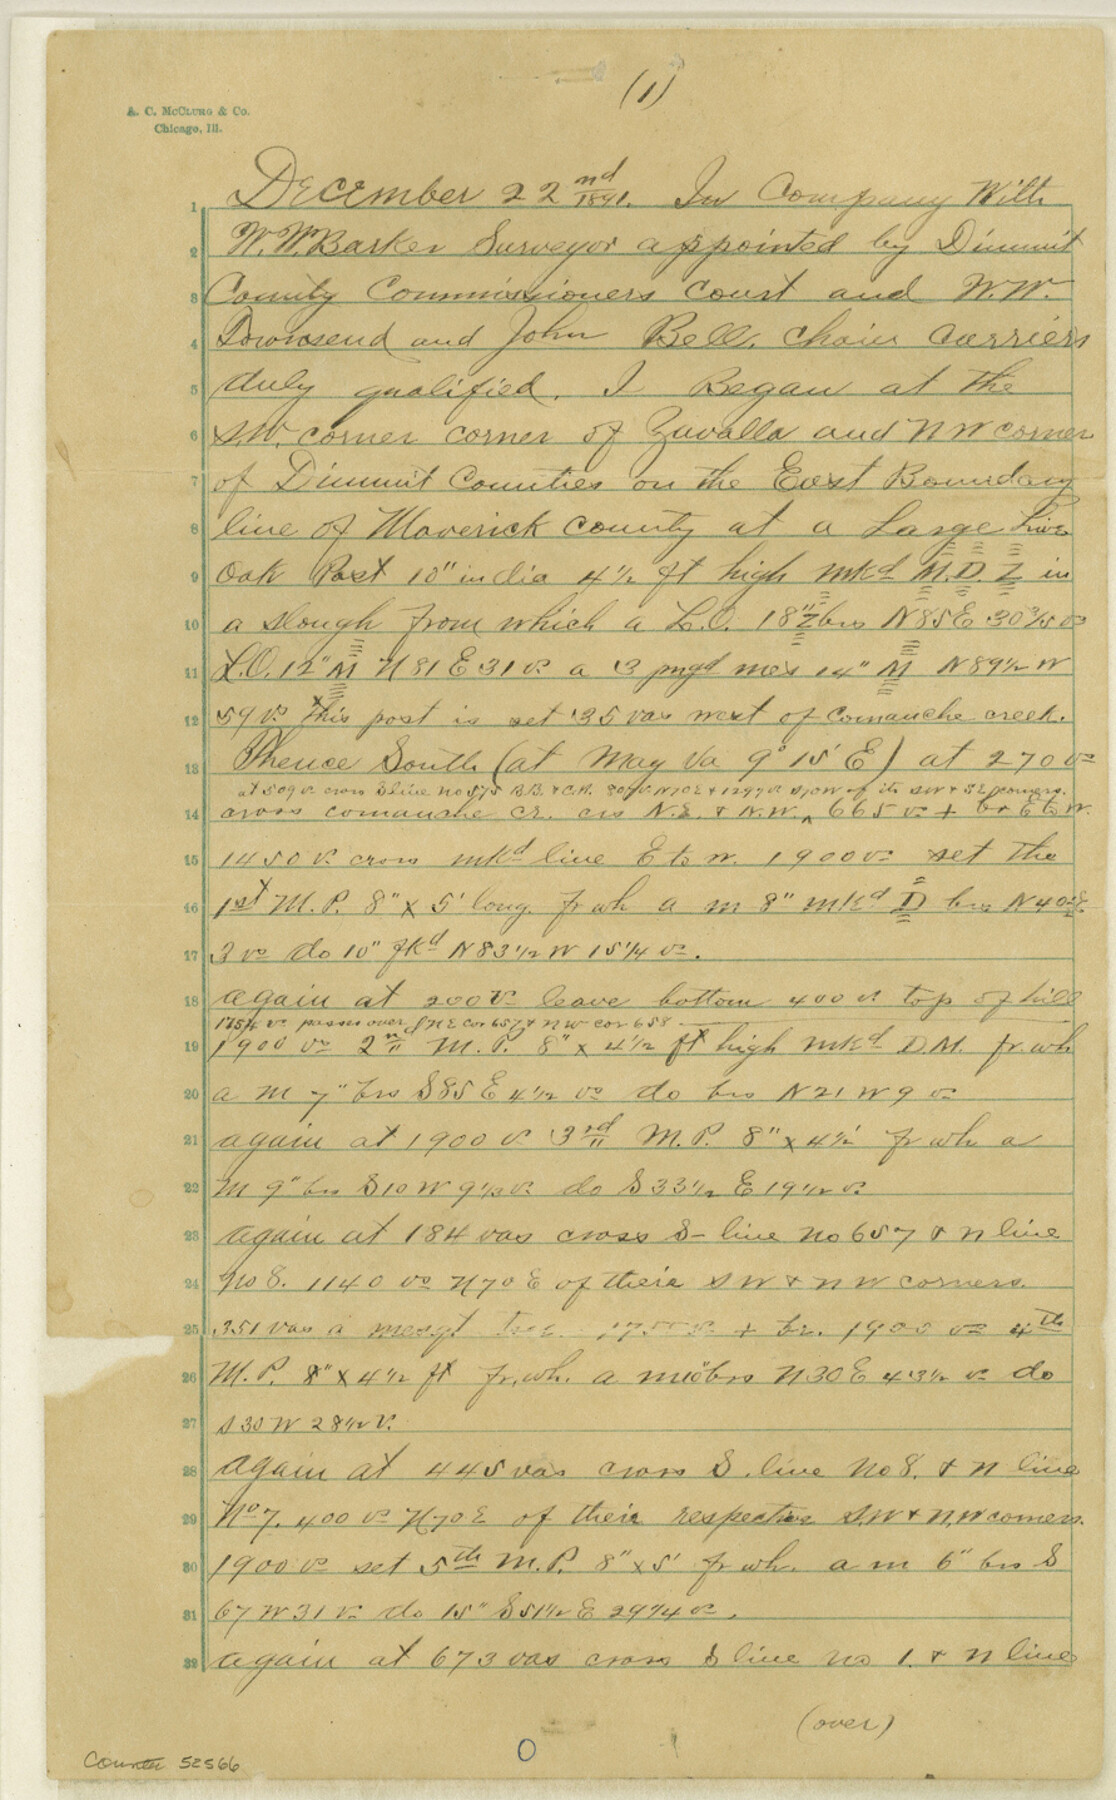 (1)
A. C. McClurg & Co.
Chicago, Ill.
1 December 22nd 1891. In Company With
2 W.W. Barker Surveyor appointed by Dimmit
3 County Commissioners Court and W.W.
4 Townsend and John Bell, chain carriers
5 duly qualified. I Began at the
6 S.W. corner corner of Zavalla and N W corner
7 of Dimmit Counties on the East Boundary
8 line of Maverick County at a Large Live
9 Oak Post 10" in dia 4½ ft high mkd M.D. Z in
10 a slough from which a L.O. 18" Z brs N85E 30 3/5 vs
11 L.O. 12" M N81E31 vs a 3 prngd mes 14" M N89½ W
12 59 vs This post is set 35 vas west of comanche creek.
13 Thence South (at Mag Va 9° 15' E) at 270 vs
at 509 vs cross S line No 575 B.B. & C.R. 809 vs N70E & 1299 vs S70W of its SW & SE corners.
14 cross comanche cr. crs N.E. & N.W. ^ 665 vs + br E to W.
15 1450 vs cross mkd line E to W. 1900 vs set the
16 1st M.P. 8" x 5' long. fr wh a m 8" mkd D brs N40E
17 3 vs do 10" fkd N83½ W 15¼ vs.
18 again at 200 vs leave bottom 400 vs top of hill
1754 vs passes over N E cor 657 & N W cor 658
19 1900 vs 2nd M.P. 8" x 4½ ft high mkd D.M. fr. wh
20 a m 7" brs S85 E 4½ vs do brs N21 W 9 vs
21 again at 1900 vs 3rd M.P. 8" x 4½' fr wh a
22 m 9" brs S10 W 9½ vs do S33½ E 19½ vs
23 again at 184 vas cross S- line No 657 & N line
24 No 8. 1140 vs N70 E of their S W & N W corners.
25 351 vas a mesqt tree 1750 vs + br. 1900 vs 4th
26 M.P. 8" x 4½ ft fr. wh. a m 10" brs N30 E 43½ vs do
27 S30 W 28½ vs.
28 again at 445 vas cross S. line No 8. & N line
29 No 7. 400 vs N70E of their respective S.W & N.W corners.
30 1900 vs set 5th M.P. 8" x 5' fr wh. a m 6" brs S
31 67 W 31 vs do 15" S51½ E 29¾ vs.
32 again at 673 vas cross S line No 1. & N line
(over)
0
Counter 52566